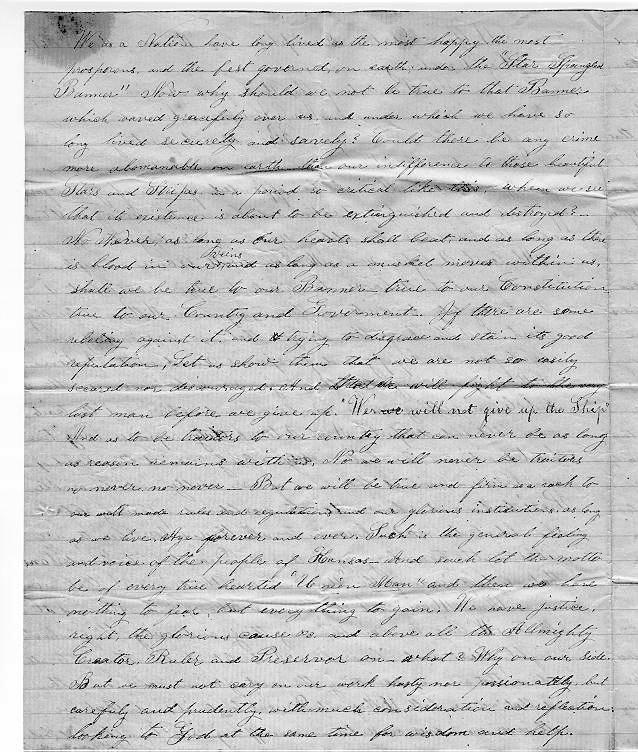 We as a Nation have long lived as the most happy the most
prosperous, and the best governed, on earth, under the "Star Spangled
Banner" Now why should we not be true to that Banner
which waved gracefully over us and under which we have so
long lived securely and savely? Could there be any crime
more abomanable on earth than our indifference to those beautiful
Stars and Stripes in a period so critical like this, when we see
that it existence is about to be extinguished and destroyed?
No Never, as long as our hearts shall beat, and as long as there
is blood in our veins, and as long as a muskel moves within us,
shall we be true to our Banner true to our Constitution
true to our Country and Goverment. If there are some
against it, and trying to disgrace and stain its good
reputation, Let us show them that we are not so easily
scared nor discouraged. And that we will fight to the very
last man before we give up. "We will not give up the Ship"
And as to be traitors to our country that can never be as long
as reason remains with us. No we will never be traitors
no never, no never – But we will be true and firm as a rock to
our well made rules and regulations, and our glorious institutions, as long
as we live, Aye forever, and ever. Such is the general feeling
and voice of the people of Kansas – And such let the motto
be of every true hearted "Union Man" and then we have
nothing to fear, but everything to gain. We have justice,
right, the glorious cause and above all the Allmighty
Creator, Ruler and Preservor on – what? Why on our side.
But we must not cary on our work hasty nor passionately but
carefuly and prudently, with much consideration and reflection
looking to God at the same time for wisdom and help.